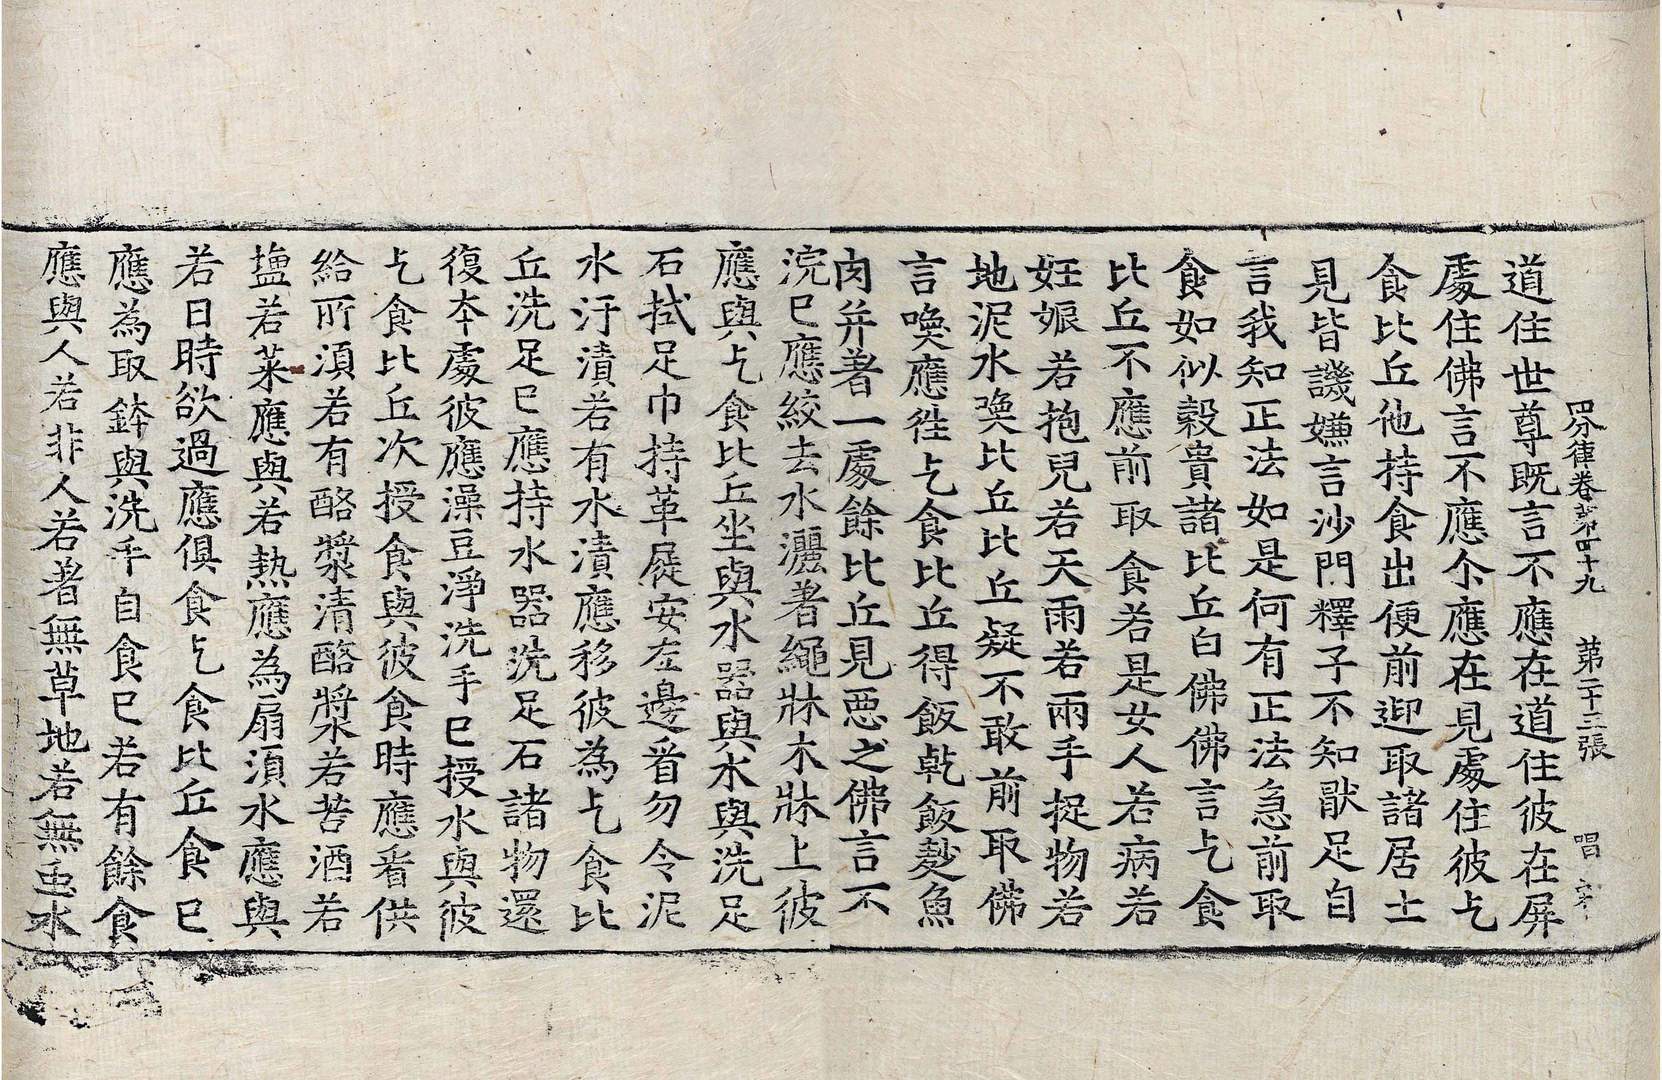 四分律卷第四十九 第二十三張 唱
道住世尊既言不應在道住彼在屏
處住佛言不應尒應在見處住彼乞
食比丘他持食出便前迎取諸居士
見皆譏嫌言沙門釋子不知猒足自
言我知正法如是何有正法急前取
食如似穀貴諸比丘白佛佛言乞食
比丘不應前取食若是女人若病若
妊娠若抱兒若天雨若兩手捉物若
地泥水喚比丘比丘疑不敢前取佛
言喚應往乞食比丘得飯乹飯麨魚
肉并著一處餘比丘見惡之佛言不
浣已應絞去水灑著繩牀木牀上彼
應與乞食比丘坐與水器與水與洗足
石拭足巾持革屣安左邊看勿令泥
水汙漬若有水漬應移彼為乞食比
丘洗足已應持水器洗足石諸物還
復本處彼應澡豆淨洗手已授水與彼
乞食比丘次授食與彼食時應看供
給所湏若有酪漿清酪漿若苦酒若
塩若菜應與若熱應為扇湏水應與
若日時欲過應俱食乞食比丘食已
應為取鉢與洗手自食已若有餘食
應與人若非人若著無草地若無虫水